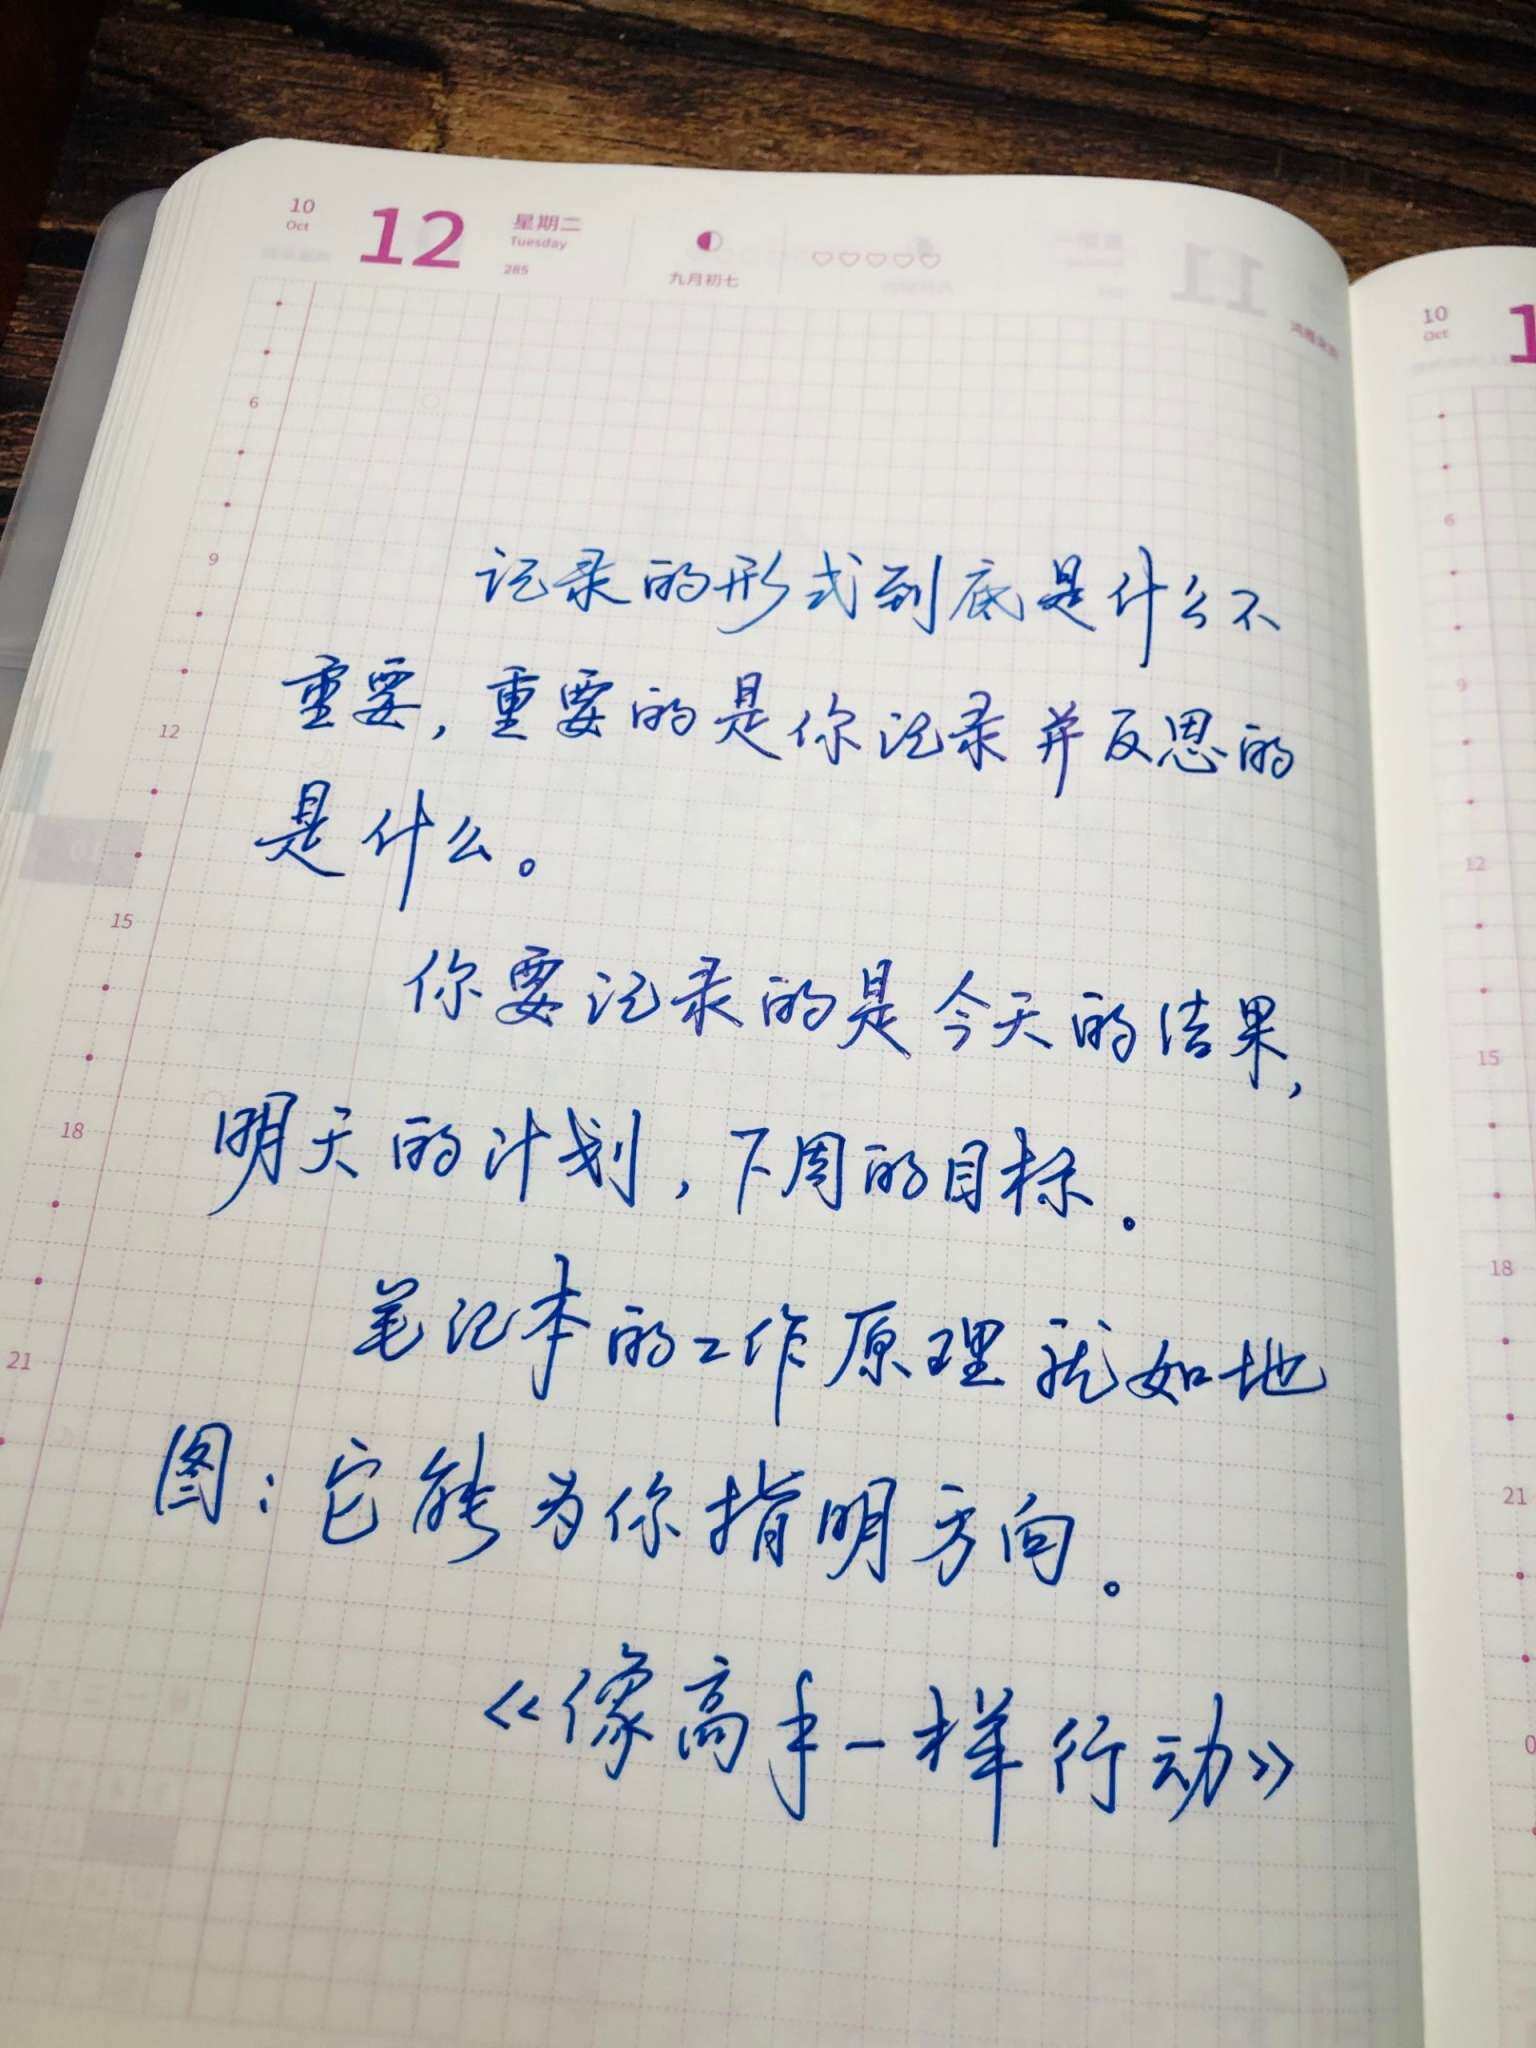 10
Oct
12
星期二
Tuesday
285
九月初七
11
10
Oct
1
6
9
12
15
18
21
记录的形式到底是什么不
重要，重要的是你记录并反思的
是什么。
你要记录的是今天的结果，
明天的计划，下周的目标。
笔记本的工作原理就如地
图：它能为你指明方向。
《像高手一样行动》
10
6
9
12
15
18
21
0